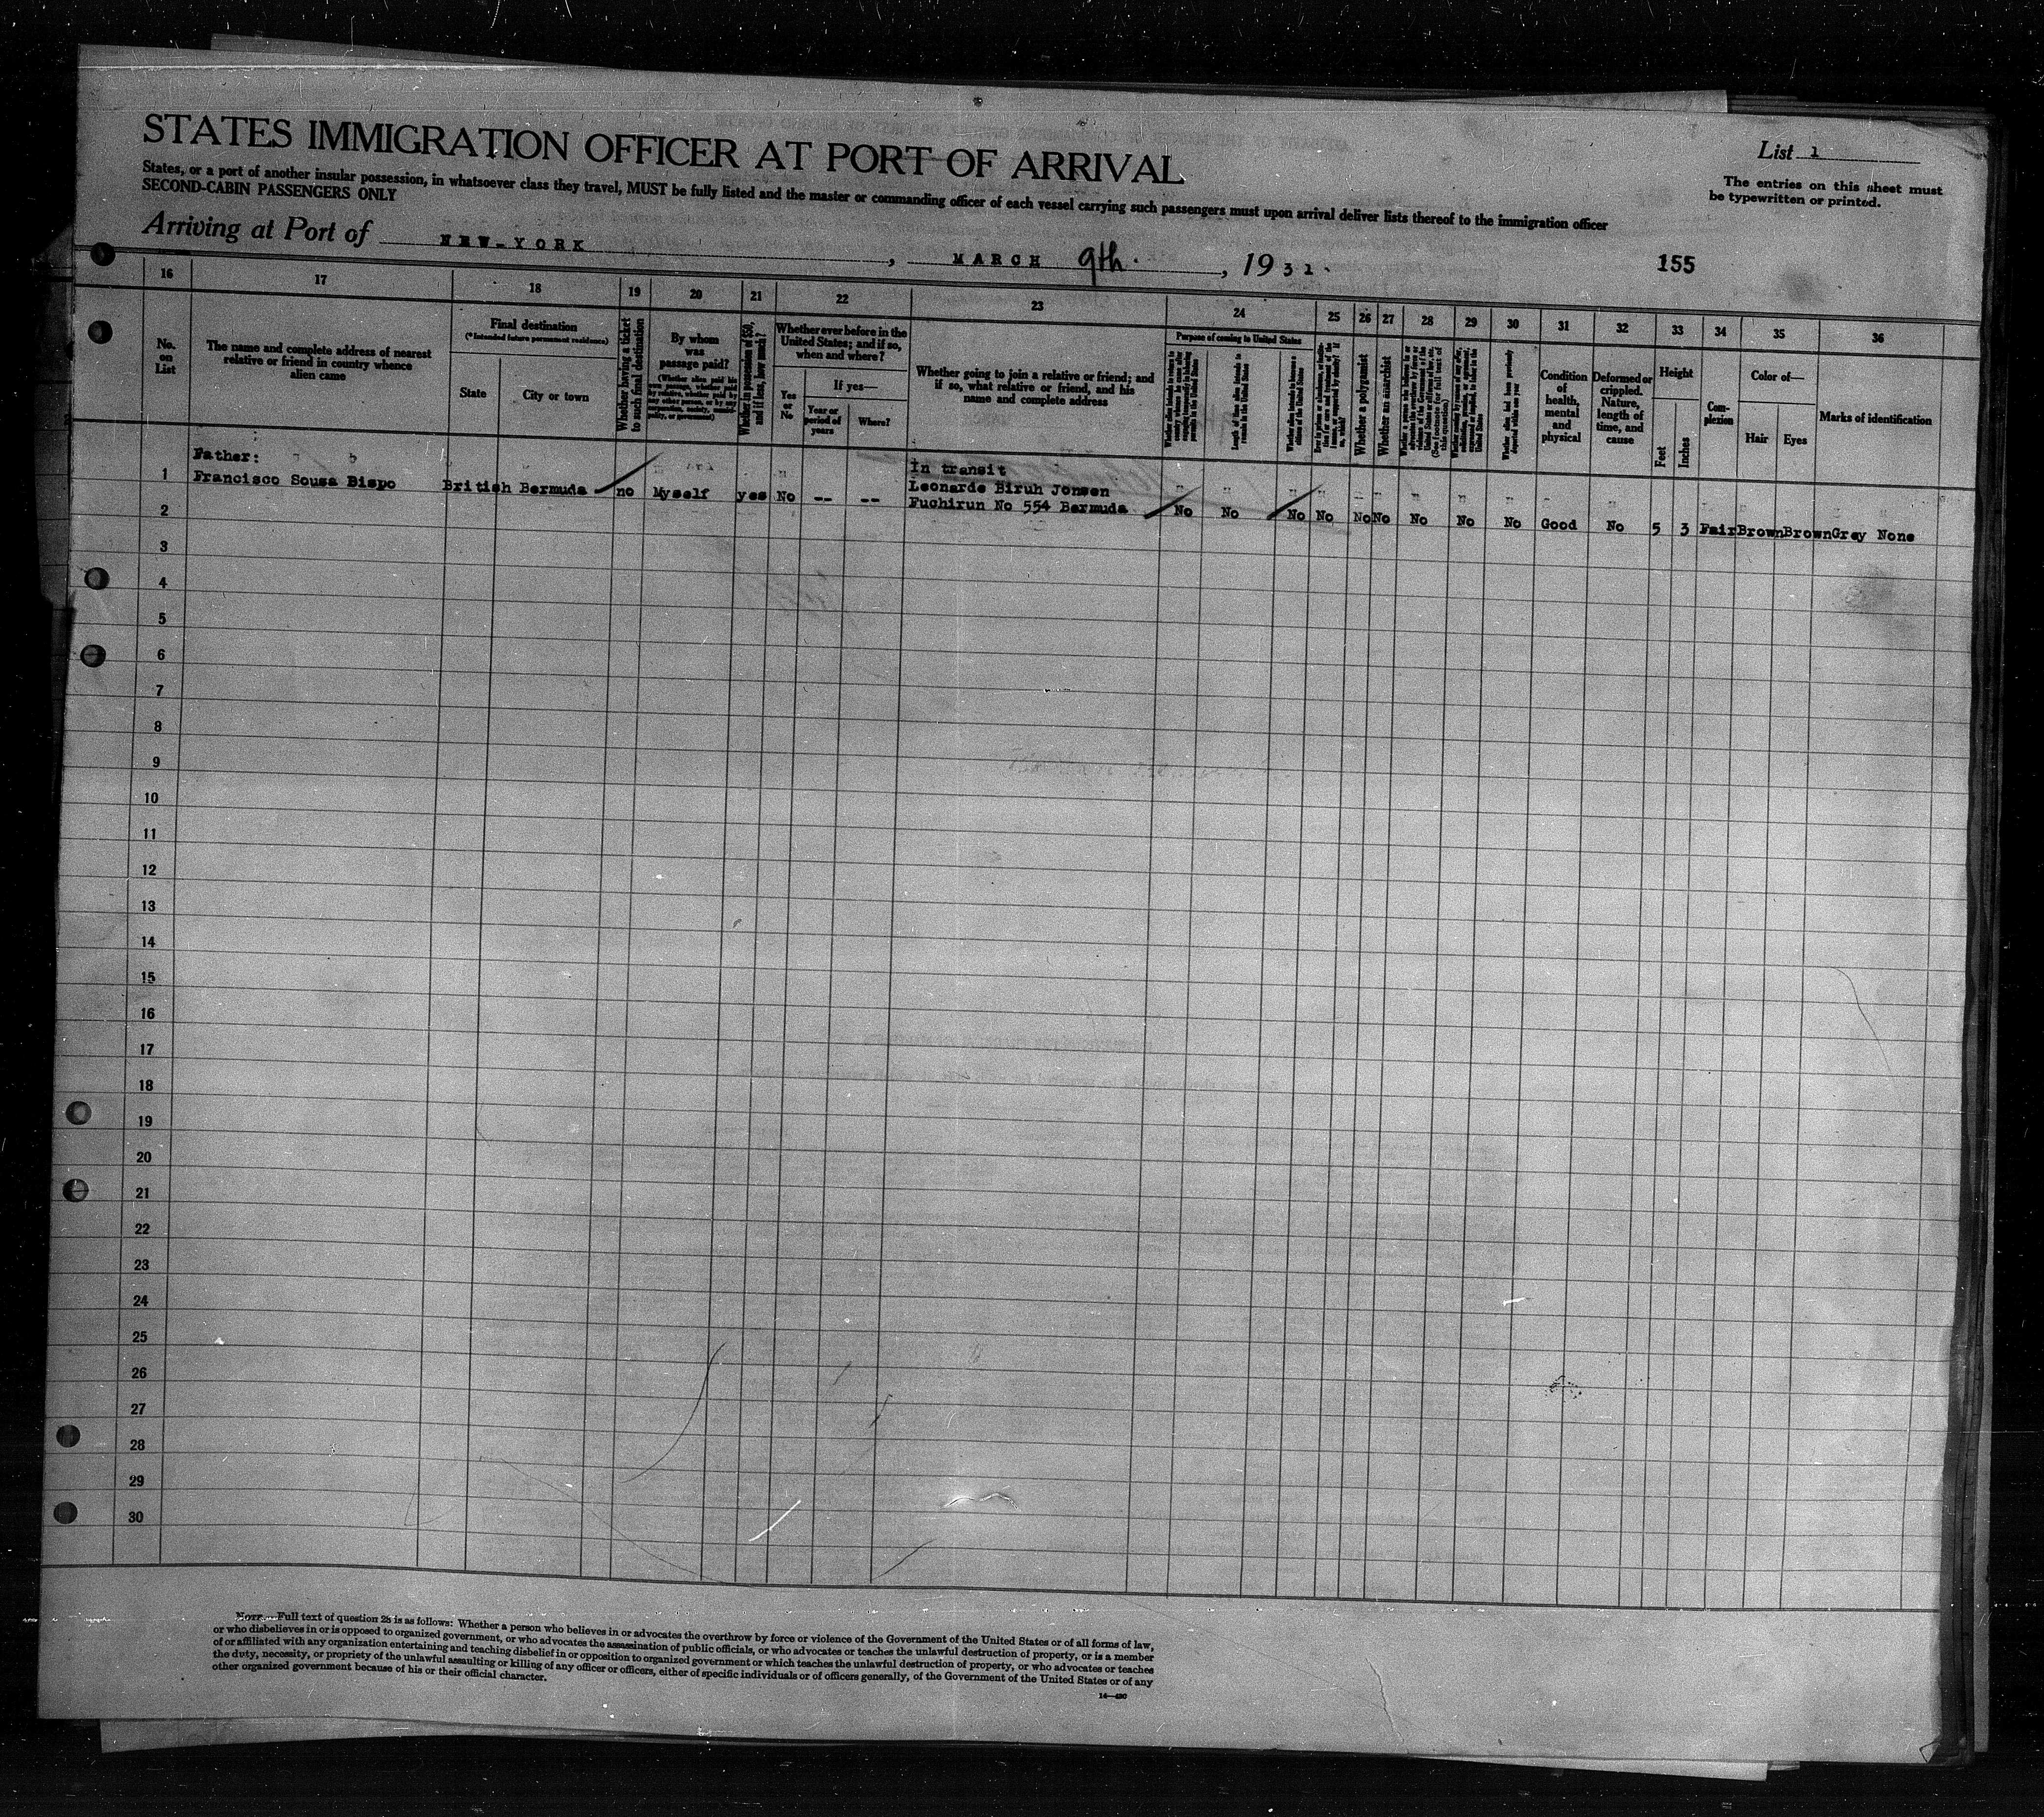 STATES IMMIGRATION OFFICER AT PORT OF ARRIVAL
List 1
States, or a port of another insular possession, in whatsoever class they travel, MUST be fully listed and the master or commanding officer of each vessel carrying such passengers must upon arrival deliver lists thereof to the immigration officer
SECOND-CABIN PASSENGERS ONLY
The entries on this sheet must
be typewritten or printed.
Arriving at Port of NEW-YORK, MARCH 9th., 1931.
155
16 17 18 19 20 21 22 23 24 25 26 27 28 29 30 31 32 33 34 35 36
No.
on
List
The name and complete address of nearest
relative or friend in country whence
alien came
Final destination
(*Intended future permanent residence)
State
City or town
Whether having a ticket
to such final destination
By whom
was
passage paid?
Whether in possession of $50,
and if less, how much?
Whether ever before in the
United States; and if so,
when and where?
Yes
or
No
If yes—
Year or
period of
years
Where?
Whether going to join a relative or friend; and
if so, what relative or friend, and his
name and complete address
Purpose of coming to United States
Length of time alien intends to
remain in the United States
Whether alien intends to become a
citizen of the United States
Whether a polygamist
Whether an anarchist
Whether alien had been previously
deported within one year
Condition
of
health,
mental
and
physical
Deformed or
crippled.
Nature,
length of
time, and
cause
Height
Feet
Inches
Com-
plexion
Color of—
Hair
Eyes
Marks of identification
Father:
In transit
1 Francisco Sousa Bispo British Bermuda no Myself yes No -- -- Leonarde Biruh Jonsen
2 Fuchirun No 554 Bermuda No No No No No No No No No Good No 5 3 Fair Brown Brown Grey None
3
4
5
6
7
8
9
10
11
12
13
14
15
16
17
18
19
20
21
22
23
24
25
26
27
28
29
30
NOTE.—Full text of question 28 is as follows: Whether a person who believes in or advocates the overthrow by force or violence of the Government of the United States or of all forms of law,
or who disbelieves in or is opposed to organized government, or who advocates the assassination of public officials, or who advocates or teaches the unlawful destruction of property, or is a member
of or affiliated with any organization entertaining and teaching disbelief in or opposition to organized government or which teaches the unlawful destruction of property, or who advocates or teaches
the duty, necessity, or propriety of the unlawful assaulting or killing of any officer or officers, either of specific individuals or of officers generally, of the Government of the United States or of any
other organized government because of his or their official character.
14—430